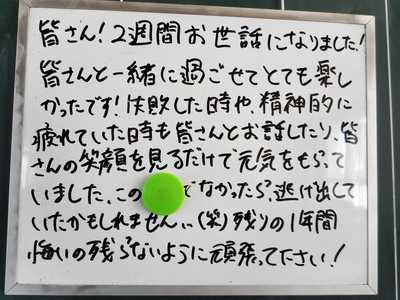 皆さん!2週間お世話になりました!
皆さんと一緒に過ごせてとても楽し
かったです!失敗した時や、精神的に
疲れていた時も皆さんとお話したり、皆
さんの笑顔を見るだけで元気をもらって
いました。この でなかったら、逃げ出して
いたかもしれません…(笑)残りの1年間
悔いの残らないように頑張って下さい!